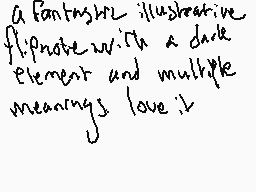 a fantastic illustrative
flipnote with a dark
element and multiple
meanings. love it